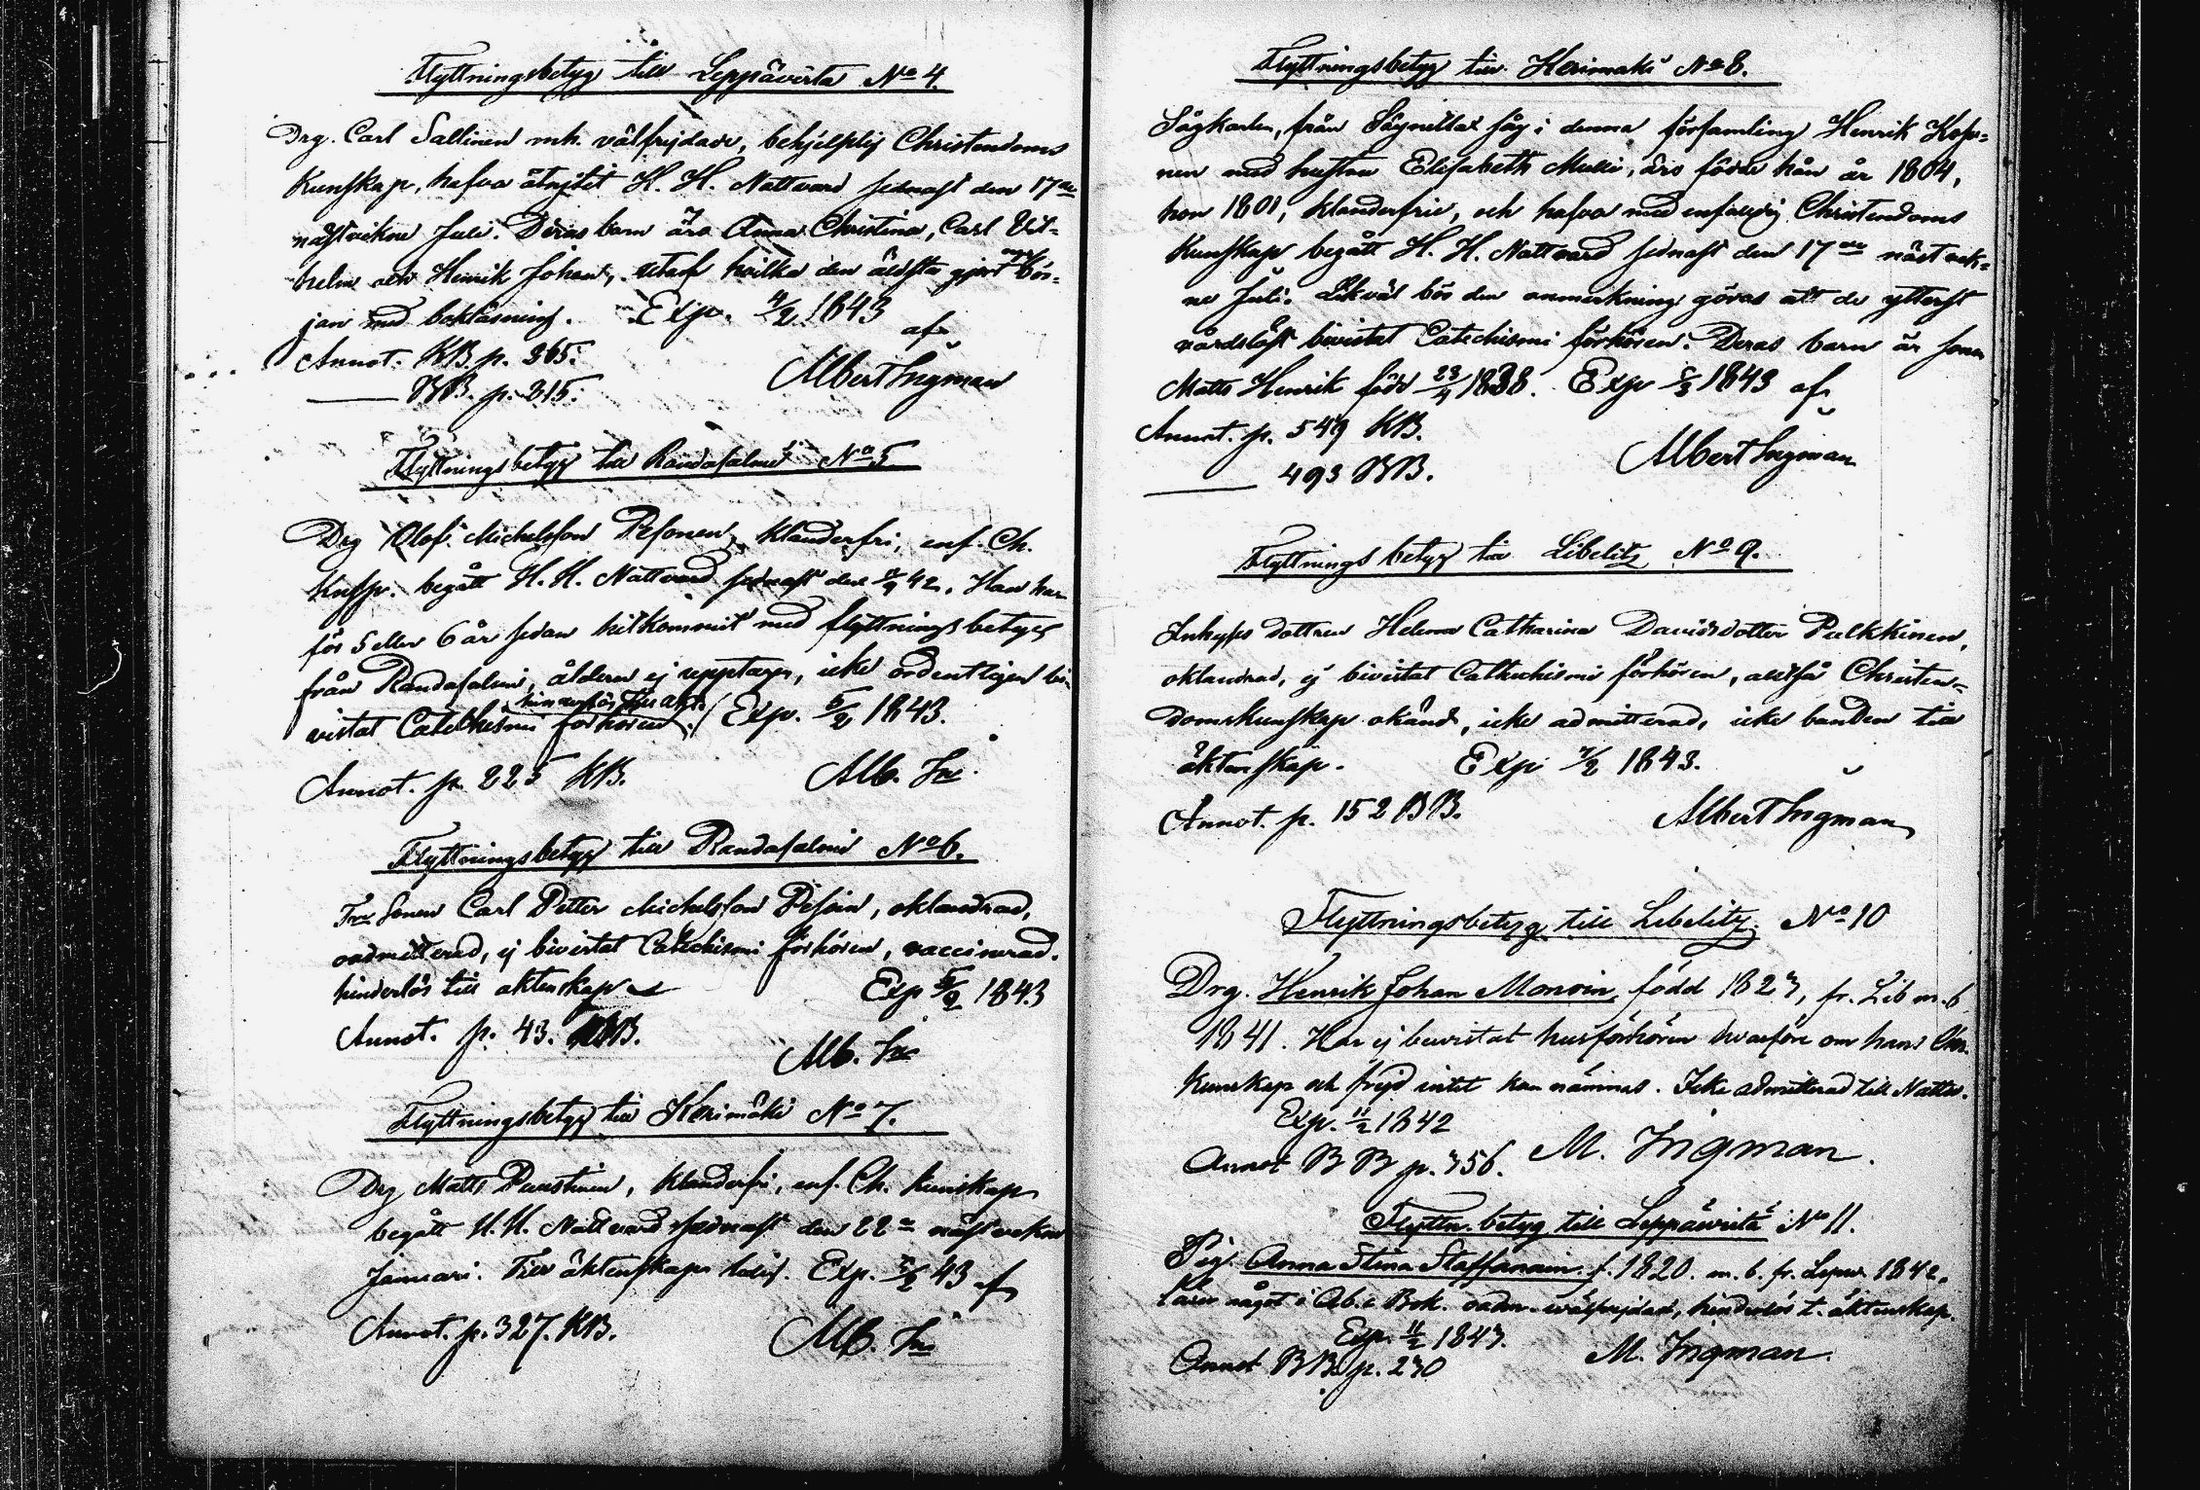 Flyttningsbetyg till Leppävirta No 4.
Drg. Carl Sallinen mh. välfrejdade, behjelplig Christendoms
Kunskap, hafva åtnjutit H. H. Nattvard sednast den 17de
nästvekne Juli. Deras barn äro Anna Christina, Carl Vil-
helm och Henrik Johan, utaf hvilka den äldsta gjort bör-
jan med bokläsning. Exp. 4/2 1843 af
Annot. KB. p. 365.
Albert Ingman
BB. p. 315.
Flyttningsbetyg till Randasalmi No 5
Drg Olof Michelsson Pesonen, klanderfri, enf. Ch.
Knskp. begått H. H. Nattvard sednast den 42. Han har
för 5 eller 6 år sedan hitkommit med flyttningsbetyg
från Randasalmi, åldern ej upptagen, icke ordentligen bi-
hinderlös till äkt.
vistat Catechismi förhören. Exp. 5/2 1843.
Annot. p. 225 KB.
Alb. In
Flyttningsbetyg till Randasalmi No 6.
Sonen Carl Petter Michelsson Pesoin, oklandrad,
oadmitterad, ej bivistat Catechismi förhören, vaccinerad.
hinderlös till äktenskap Exp 5/2 1843
Annot. p. 43. BB.
Alb. In
Flyttningsbetyg till Kerimäki No 7.
Drg Matts Puustinen, klanderfri, enf. Ch. kunskap
begått H. H. Nattvard sednast den 22 nästvekne
Januari. Till äktenskap ledig. Exp. 5/2 43 af
Annot. p. 327. KB.
Alb. In
Flyttningsbetyg till Kerimäki No 8.
Sågkarlen, från såg i denna församling Henrik Kop-
nen med hustru Elisabeth, äro födde han år 1804,
hon 1801, klanderfrie, och hafva med enfaldig Christendoms
Kunskap begått H. H. Nattvard sednast den 17de nästvek-
ne Juli. Likväl bör den anmerkning göras att de ytterst
vårdslöst bivistat Catechismi förhören. Deras barn är sonen
Matts Henrik född 23/4 1838. Exp 1843 af
Annot. p. 549 KB.
Albert Ingman
493 BB.
Flyttnings betyg till Libelitz No 9.
Inhyses dottren Helena Catharina Davidsdotter Pulkkinen,
oklandrad, ej bivistat Catechismi förhören, alltså Christen-
domskunskap okänd, icke admitterad, icke bunden till
äktenskap. Exp 7/2 1843.
Annot. p. 152 BB.
Albert Ingman
Flyttningsbetyg till Libelitz No 10
Drg. Henrik Johan Monoin, född 1827, fr. Lib m. b.
1841. Har ej bevistat husförhören hvarföre om hans Chr.
kunskap och frejd intet kan nämnas. Icke admitterad till Nattv.
Exp. 11/2 1842
Annot BB p. 756. M. Ingman.
Flyttn. betyg till Leppävirta No 11.
Pig. Anna Stina Staffanain f. 1820. m. b. fr. Lepw. 1842.
Läser något i Ab. c Bok. oadm. wälfrejdad, hinderlös t. äktenskap.
Exp. 11/2 1843.
Annot BB p. 270 M. Ingman.